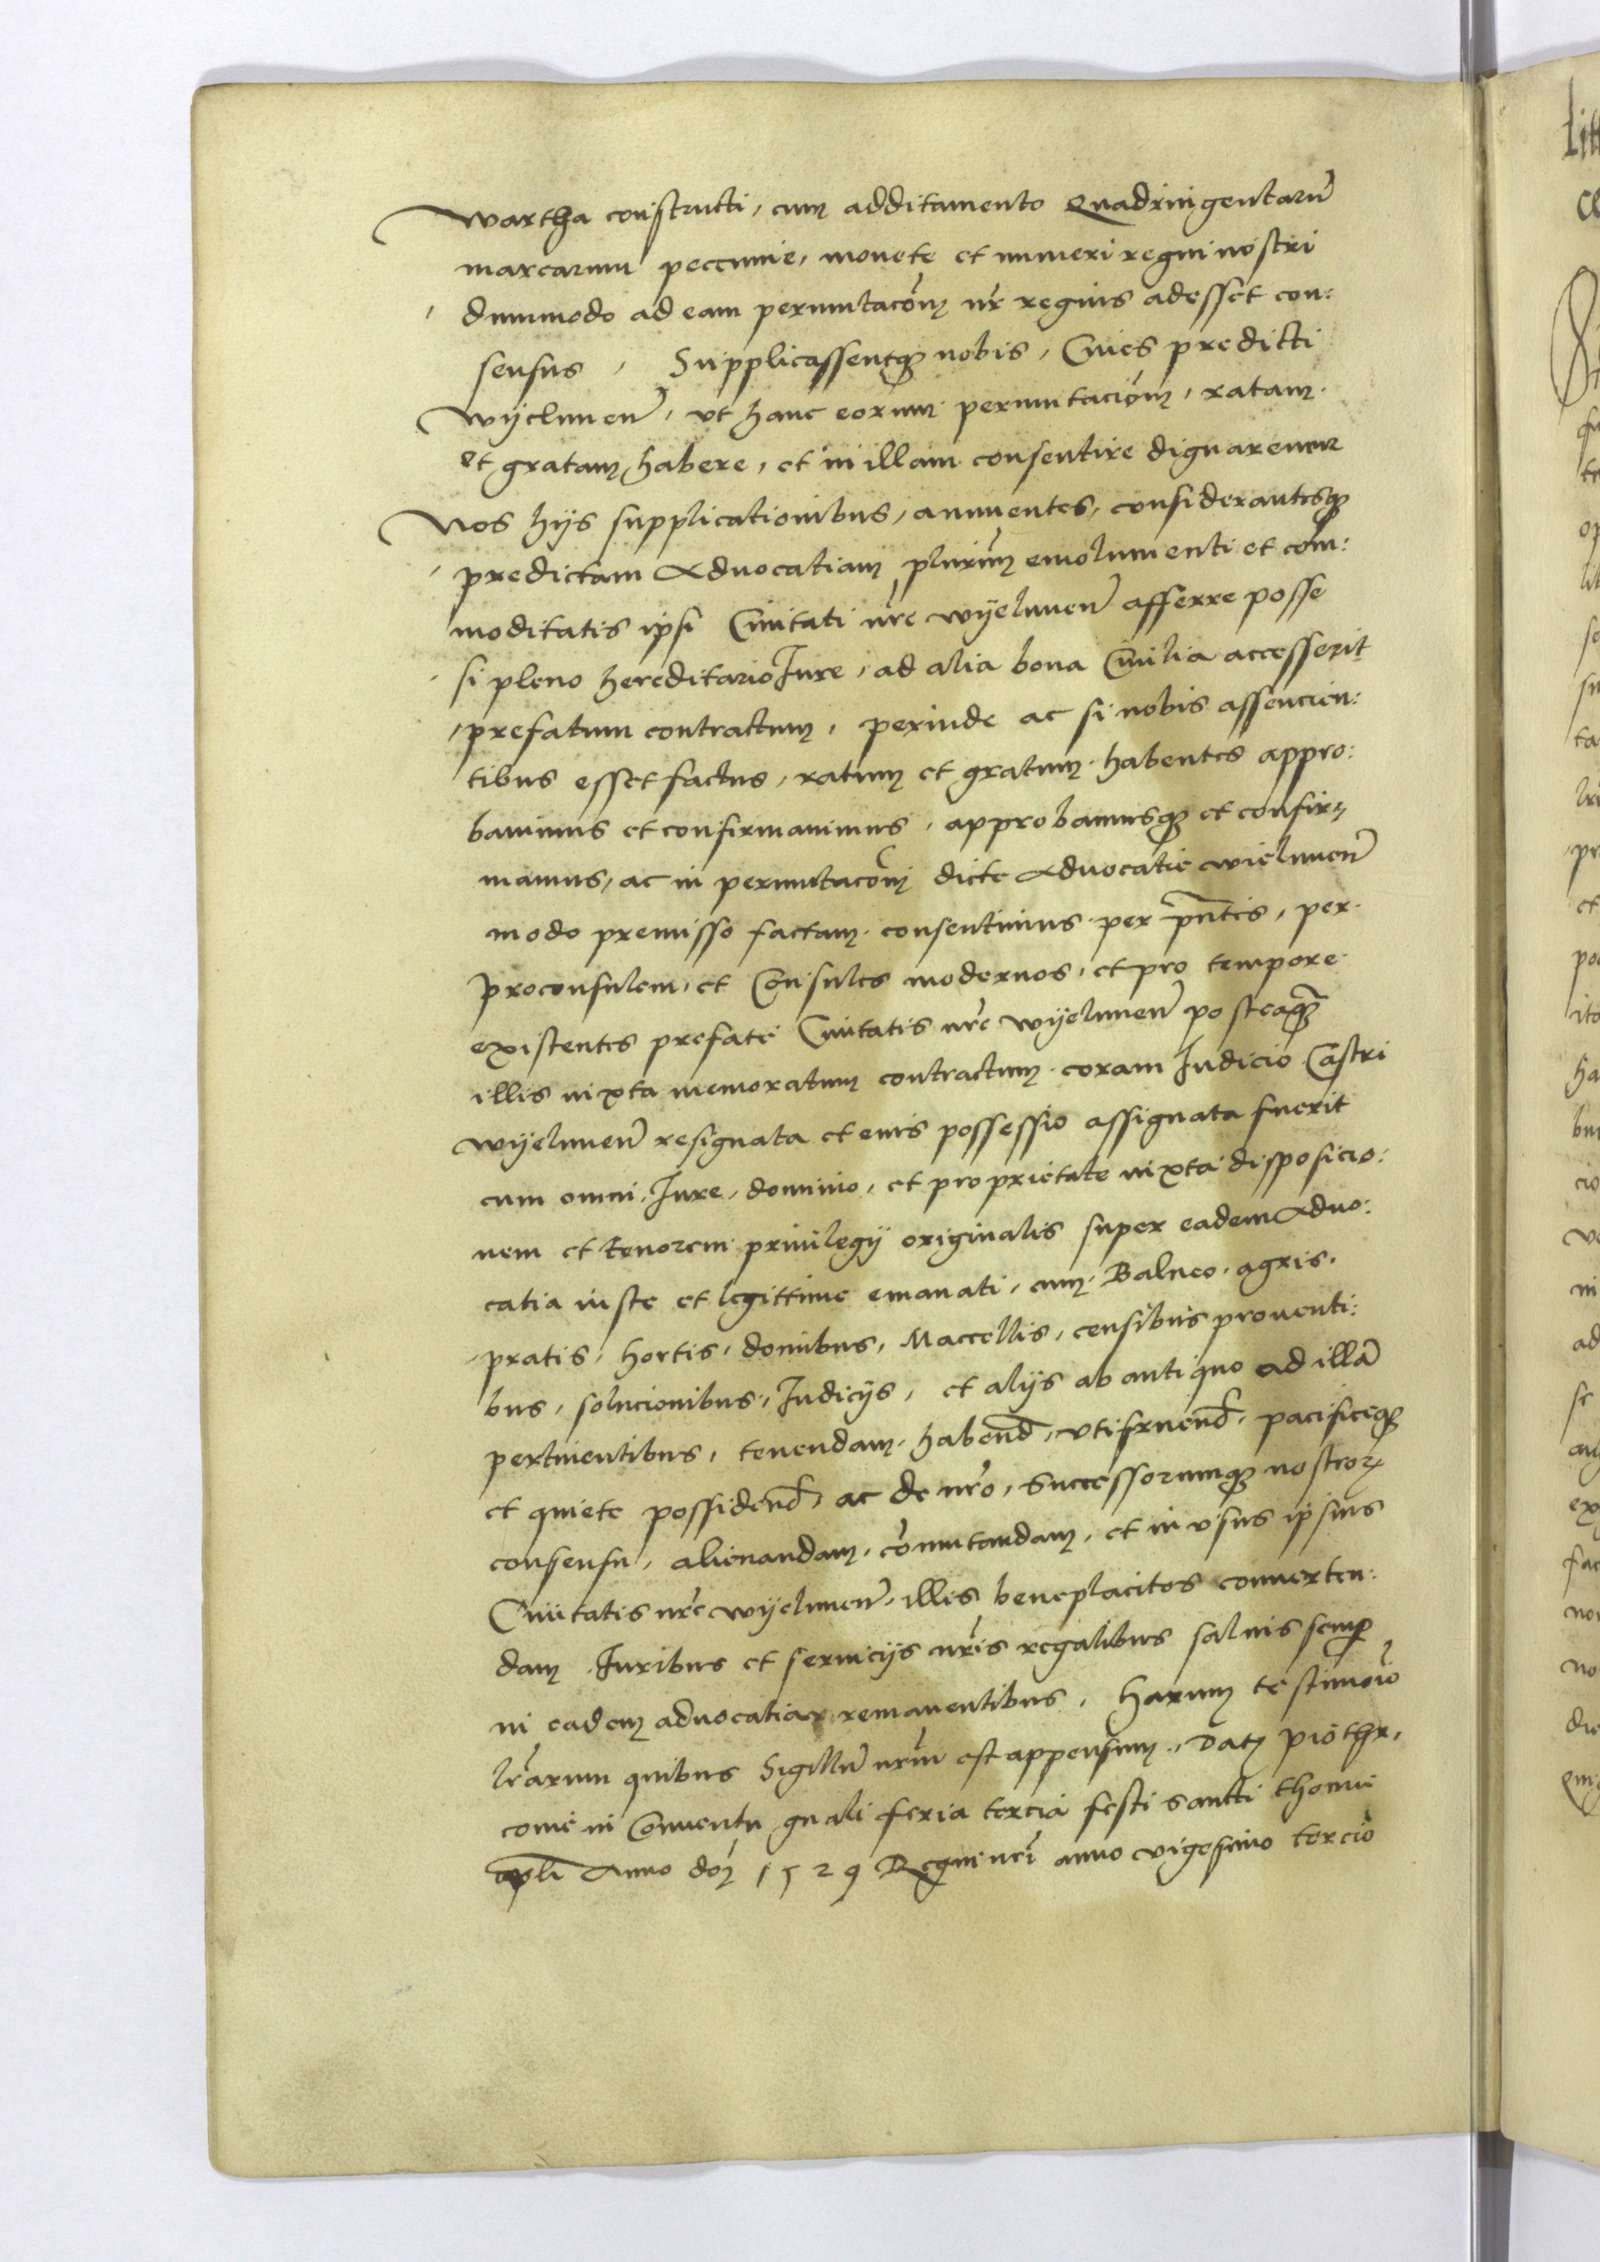 Wartha constructi, cum additamento Quadringentaru͂
marcarum peccunie, monete et numeri regni nostri
dummodo ad eam permutaco͂m nr͂ regius adesset con:
sensus, Supplicassentq3 nobis, Ciues predicti
Wyelunen͂, vt hanc eorum permutacio͂m, ratam
et gratam habere, et in illam consentire dignaremur
Nos hijs supplicationibus, annuentes, considerantesq3
predictam Aduocatiam plurim͂ emolumenti et com:
moditatis ipsi Ciuitati nr͂e wyelunen͂ afferre posse
si pleno hereditario Iure, ad alia bona Ciuilia accesserit
prefatum contractum, perinde ac si nobis assencien:
tibus esset factus, ratum et gratum habentes appro:
bauimus et confirmauimus, approbamusq3 et confir:
mamus, ac in permutaco͂m dicte Aduocatie wielunen͂
modo premisso factam consentimus per pn͂tes, per
proconsulem, et Consules modernos, et pro tempore
existentes prefate Ciuitatis nr͂e wyelunen͂ posteaq3
illis iuxta memoratum contractum coram Iudicio Castri
wyelunen͂ resignata et eius possessio assignata fuerit
cum omni Iure, dominio, et proprietate iuxta disposicio:
nem et tenorem priuilegij originalis super eadem Aduo:
catia iuste et legittime emanati, cum Balneo, agris,
pratis, hortis, domibus, Maccellis, censibus prouenti:
bus, solucionibus, Iudicijs, et alijs ab antiquo ad illa͂
pertinentibus, tenendam, habend͂, vtifruend͂, pacificeq3
et quiete possidend͂, ac de nr͂o, Successorumq3 nostror͂
consensu, alienandam, co͂mutandam, et in vsus ipsius
Ciuitatis nr͂e wyelunen͂ illis beneplacitos conuerten:
dam Iuribus et seruicijs nr͂is regalibus saluis semp͂
in eadem aduocatia remanentibus, Harum testimo͂io
lr͂arum quibus Sigillu͂ nr͂m est appensum, Dat͂ piothr,
couie in Conuentu gn͂ali feria tercia festi Sancti thome
apl͂i Anno do͂m 1529 Regni nr͂i anno vigesimo tercio